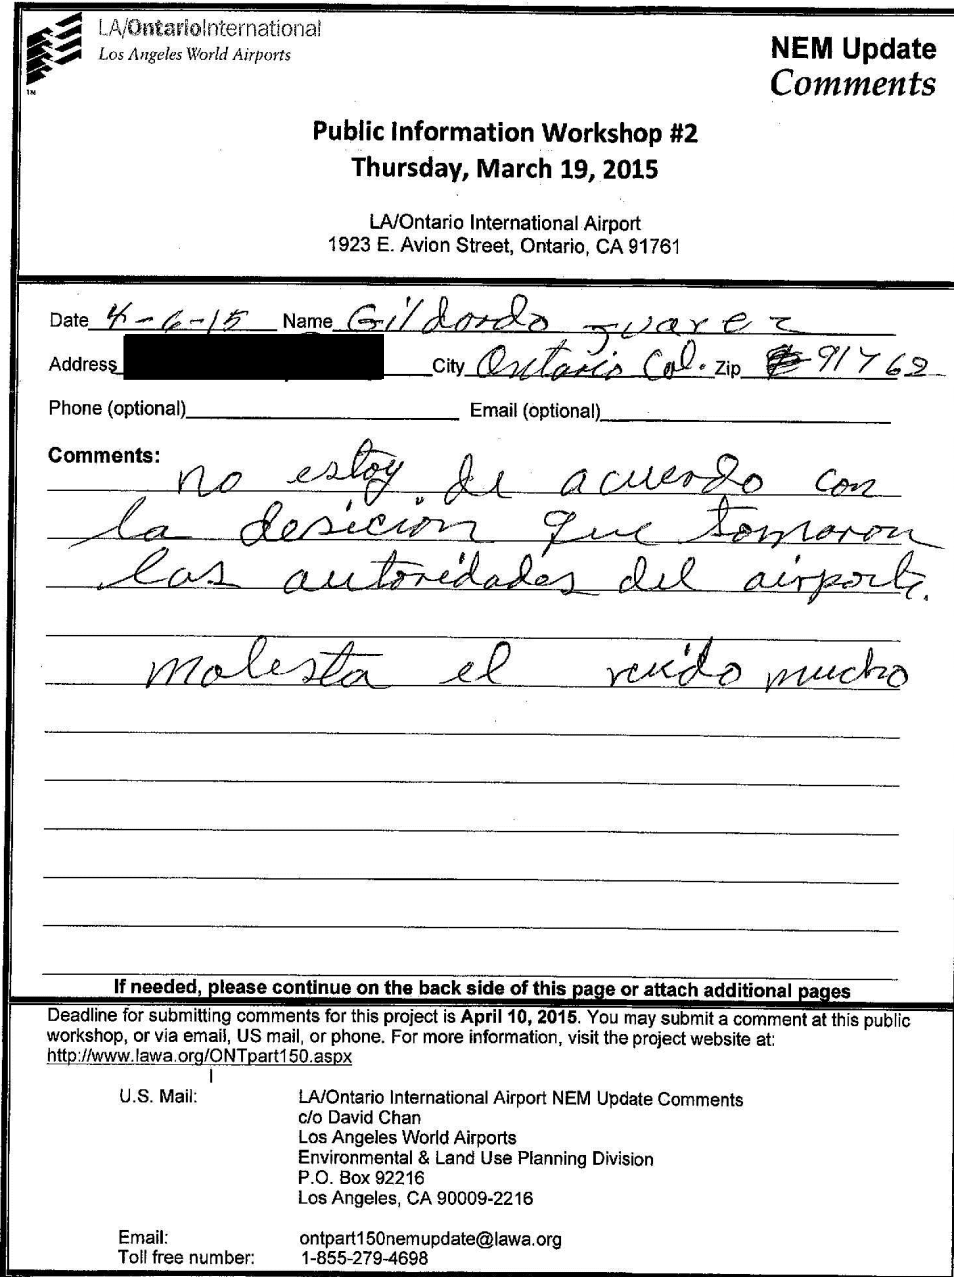 LA/OntarioInternational
Los Angeles World Airports
TM
NEM Update
Comments
Public Information Workshop #2
Thursday, March 19, 2015
LA/Ontario International Airport
1923 E. Avion Street, Ontario, CA 91761
Date 4-6-15 Name Gildardo Juarez
Address City Ontario Cal. Zip 91762
Phone (optional) Email (optional)
Comments:
no estoy de acuerdo con
la desición que tomaron
las autoridades del airport.
molesta el ruido mucho
If needed, please continue on the back side of this page or attach additional pages
Deadline for submitting comments for this project is April 10, 2015. You may submit a comment at this public
workshop, or via email, US mail, or phone. For more information, visit the project website at:
http://www.lawa.org/ONTpart150.aspx
U.S. Mail: LA/Ontario International Airport NEM Update Comments
c/o David Chan
Los Angeles World Airports
Environmental & Land Use Planning Division
P.O. Box 92216
Los Angeles, CA 90009-2216
Email: ontpart150nemupdate@lawa.org
Toll free number: 1-855-279-4698